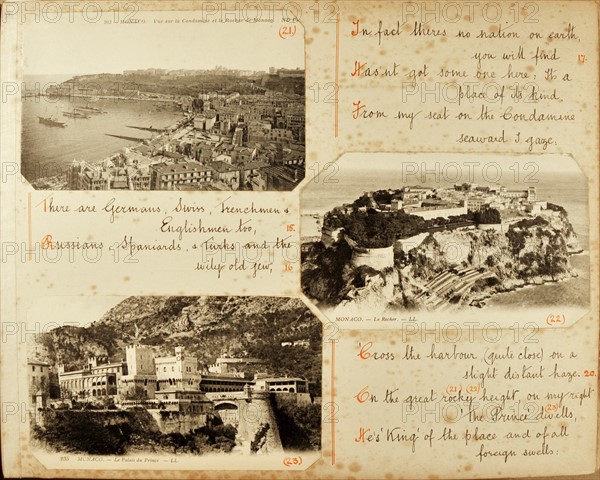 225 – MONACO. Vue sur la Condamine et le Rocher de Monaco ND
(21)
There are Germans, Swiss, Frenchmen &
Englishmen too, 15.
Russians, Spaniards, & Turks and the
wily old Jew, 16
235 MONACO. – Le Palais du Prince. – LL.
(23)
In fact theres no nation on earth,
you will find 17.
Hasnt got some one here: It's a
place of its kind.
From my seat on the Condamine
seaward I gaze.
MONACO. – Le Rocher. – LL.
(22)
'Cross the harbour (quite close) on a
slight distant haze. 20.
(21) (22)
On the great rocky height, on my right
(23)
'The Prince' dwells,
He's 'King' of the place and of all
foreign swells: